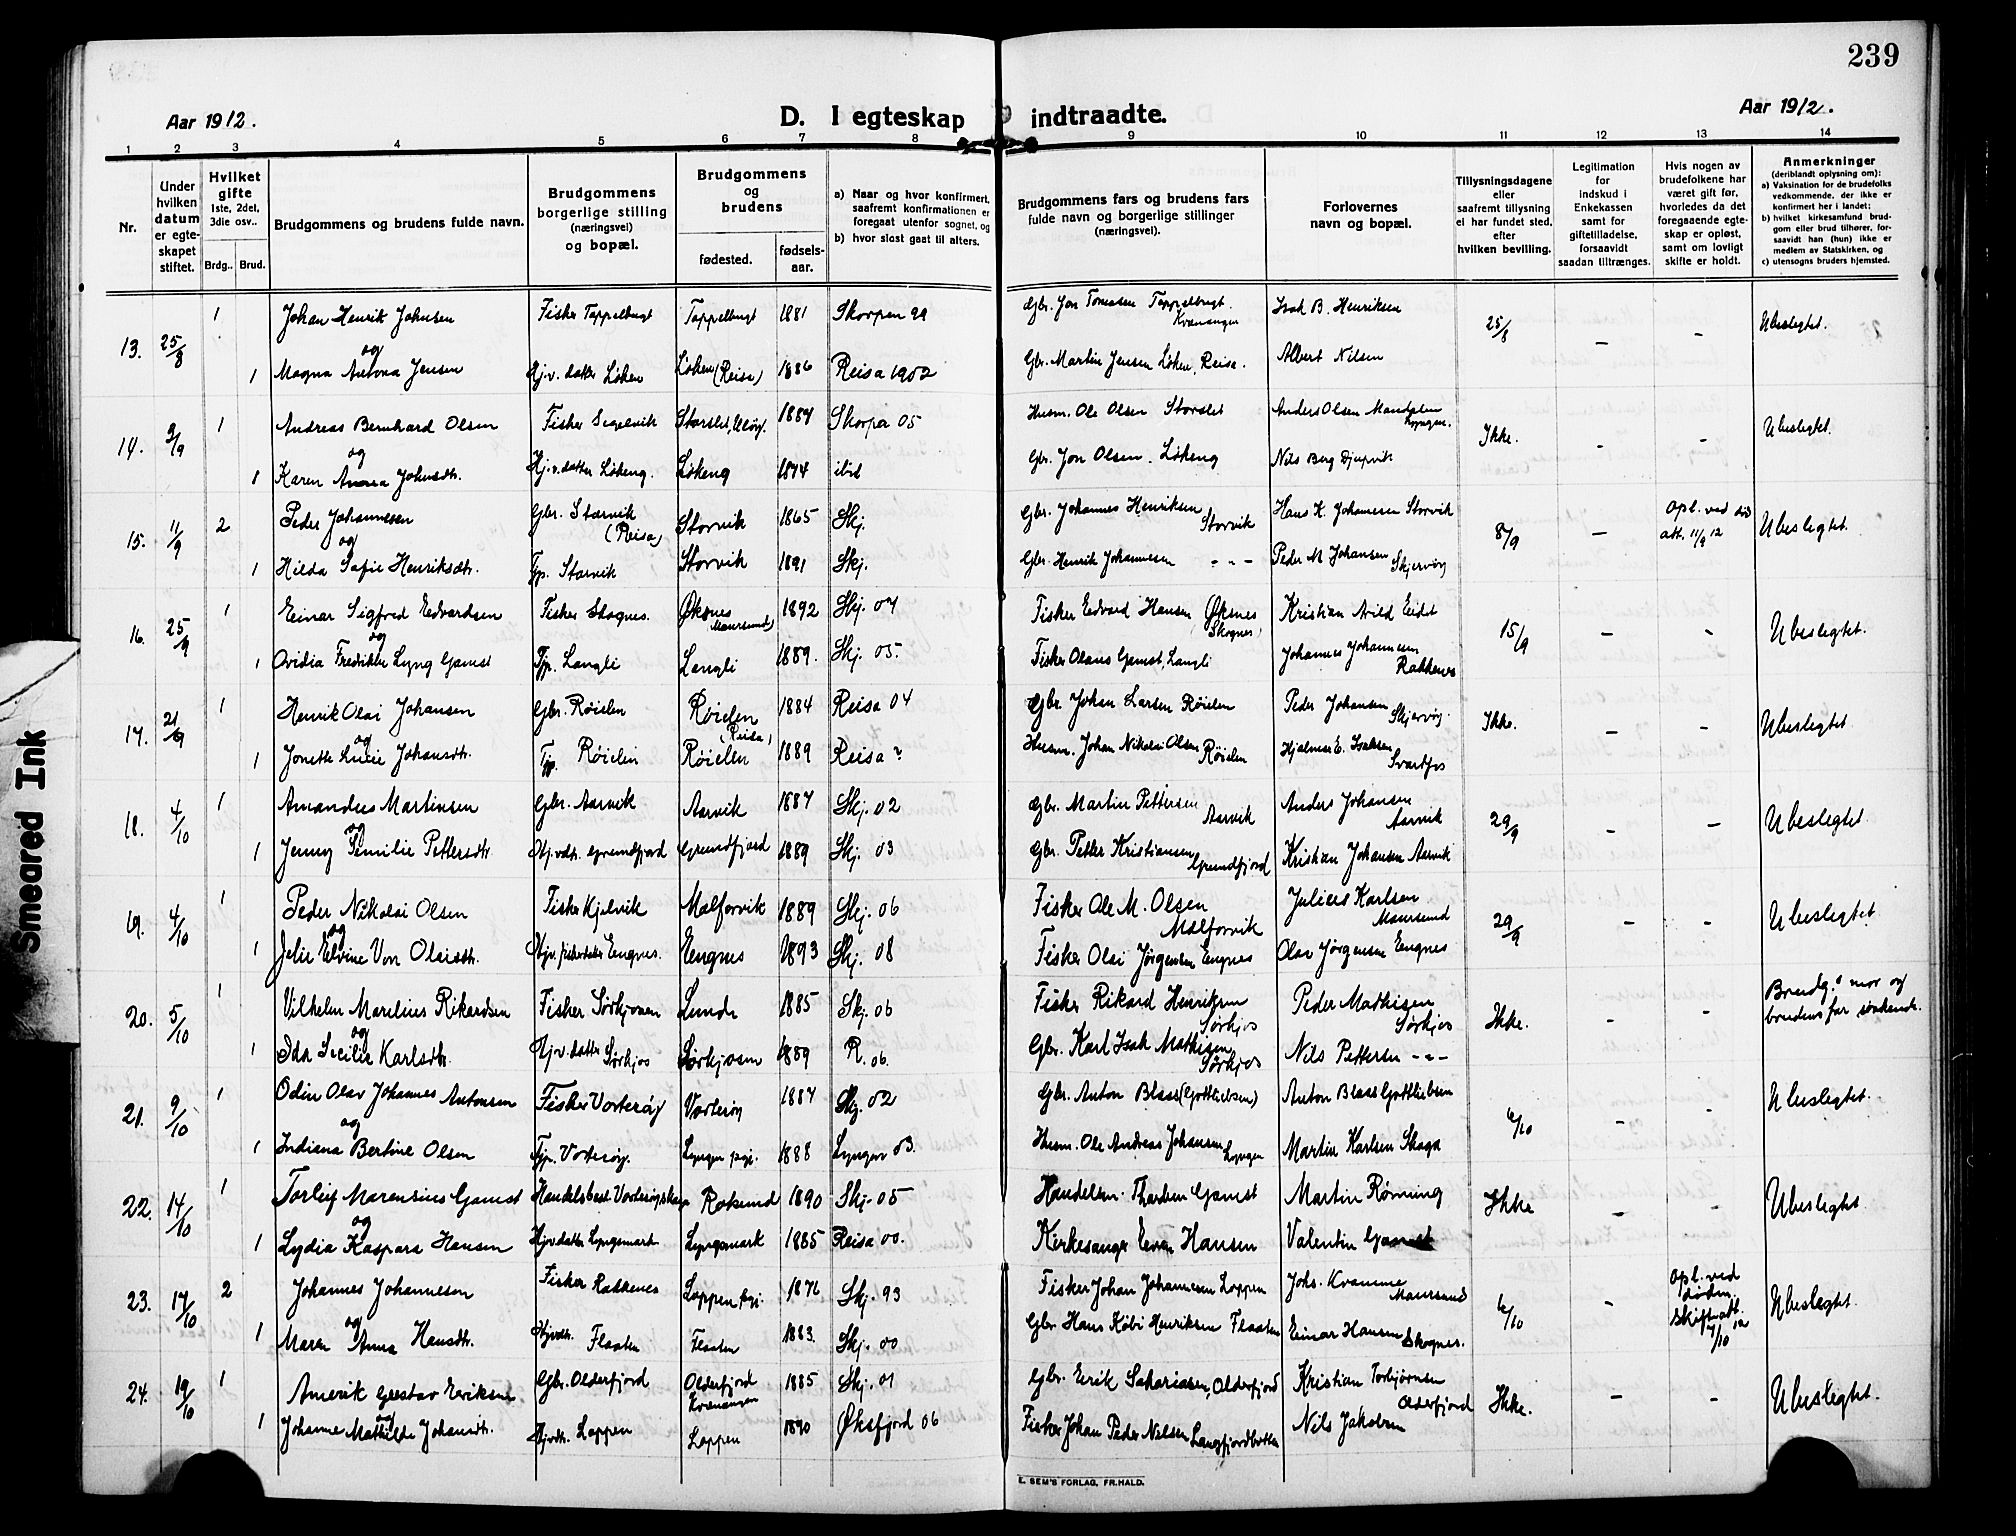 239
Aar 1912.
D. I egteskap indtraadte.
Aar 1912.
1 2 3 4 5 6 7 8 9 10 11 12 13 14
Nr.
Under hvilken datum er egteskapet stiftet.
Hvilket gifte 1ste, 2det, 3die osv..
Brdg.. Brud.
Brudgommens og brudens fulde navn.
Brudgommens borgerlige stilling (næringsvei) og bopæl.
Brudgommens og brudens
fødested. fødsels-aar.
a) Naar og hvor konfirmert, saafremt konfirmationen er foregaat utenfor sognet, og
b) hvor sidst gaat til alters.
Brudgommens fars og brudens fars fulde navn og borgerlige stillinger (næringsvei).
Forlovernes navn og bopæl.
Tillysningsdagene eller saafremt tillysning ei har fundet sted, efter hvilken bevilling.
Legitimation for indskud i Enkekassen samt for giftetilladelse, forsaavidt saadan tiltrænges.
Hvis nogen av brudefolkene har været gift før, hvorledes da det foregaaende egteskap er opløst, samt om lovligt skifte er holdt.
Anmerkninger (deriblandt oplysning om):
a) Vaksination for de brudefolks vedkommende, der ikke er konfirmert her i landet;
b) hvilket kirkesamfund brudgom eller brud tilhører, forsaavidt han (hun) ikke er medlem av Statskirken, og
c) utensogns bruders hjemsted.
13. 25/8 1 Johan Henrik Johnsen Fisker Tappelbugt Tappelbugt 1881 Skorpen 99 Gbr. Jon Tomassen Tappelbugt. Kvænangen Isak B. Henriksen 25/8 – – Ubeslegtet.
og
1 Magna Antona Jensen Hj.v. datter Løken Løken (Reisa) 1886 Reisa 1902 Gbr. Martin Jensen Løken, Reisa. Albert Nilsen
14. 3/9 1 Andreas Bernhard Olsen Fisker Segelvik Storslet, 1884 Skorpa 05 Husm. Ole Olsen Storslet Anders Olsen Mandalen Lyngen. Ikke. – – Ubeslegtet.
og
1 Karen Anna Johnsdtr. Hj.v. datter Løkeng. Løkeng 1874 ibid Gbr. Jon Olsen. Løkeng Nils Berg Djupvik
15. 11/9 2 Peder Johannesen Gbr. Storvik (Reisa) Storvik 1865 Skj. Gbr. Johannes Henriksen Storvik Hans K. Johannesen Storvik 8/9 – Opl. ved att. 11/9 12 Ubeslegtet.
og
1 Hilda Sofie Henriksdtr. Tjp. Storvik Storvik 1891 Skj. Gbr. Henrik Johannesen - " - Peder M Johansen Skjervøy
16. 25/9 1 Einar Sigfred Edvardsen Fisker Skognes. Øksnes Maursund 1892 Skj. 07 Fisker Edvard Hansen Øksnes (Skognes) Kristian Arild Eidet 15/9 – – Ubeslegtet.
og
1 Ovidia Fredrikke Lyng Gamst Tjp. Langli Langli 1889. Skj. 05. Fisker Olaus Gamst, Langli Johannes Johannesen Rakkenes
17. 21/9 1 Henrik Olai Johansen Gbr. Røielen Røielen (Reisa) 1884 Reisa 04 Gbr. Johan Larsen Røielen Peder Johansen Skjervøy Ikke. – – Ubeslegtet
og
1 Jonette Lucie Johansdtr. Tjp. Røielen Røielen 1889 Reisa ? Husm. Johan Nikolai Olsen Røielen Hjalmar E. Isaksen Svartfos
18. 4/10 1 Amandus Martinsen Gbr. Aarvik Aarvik 1887 Skj. 02 Gbr. Martin Pettersen Aarvik Anders Johansen Aarvik 29/9 – – Ubeslegtet
og
1 Jenny Emilie Pettersdtr. Hj.v.dtr. Grundfjord Grundfjord 1889 Skj. 03 Gbr. Petter Kristiansen Grundfjord Kristian Johansen Aarvik
19. 4/10 1 Peder Nikolai Olsen Fisker Kjelvik Malforvik 1889 Skj. 06 Fisker Ole M. Olsen Malforvik Julius Karlsen Maursund 29/9 – – Ubeslegtet
og
1 Jelie Elvine Von Olaisdtr. Hjv. fiskerdatter Engnes. Engnes 1893 Skj. 08 Fisker Olai Jørgensen Engnes Olav Jørgensen Engnes
20. 5/10 1 Vilhelm Marelius Rikardsen Fisker Sørkjosen Lunde 1885 Skj. 06 Fisker Rikard Henriksen Sørkjos Peder Mathisen Sørkjos Ikke. – – Brudg.s mor og brudens far søskende.
og
1 Ida Secilie Karlsdtr. Hj.v. datter Sørkjos Sørkjosen 1889 R. 06. Gbr. Karl Isak Mathisen Sørkjos Nils Pettersen - " -
21. 9/10 1 Odin Olav Johannes Antonsen Fisker Vorterøy Vorterøy 1887 Skj. 02 Gbr. Anton Blass (Gottliebsen) Anton Blass Gottliebsen 6/10 – – Ubeslegtet.
og
1 Indiana Bertine Olsen Tjp. Vorterøy. Lyngen pgj. 1888 Lyngen 03. Husm. Ole Andreas Johansen Lyngen Martin Karlsen Skaga
22. 14/10 1 Torleif Marensius Gamst Handelsbest. Vorterøyskagen Roksund 1890 Skj. 05 Handelsm. Gamst Martin Rørning Ikke – – Ubeslegtet
og
1 Lydia Kaspara Hansen Hjv. datter Lyngsmark Lyngsmark 1885 Reisa 00. Kirkesanger Hansen Valentin Gamst
23. 17/10 2 Johannes Johannesen Fisker Rakkenes Loppen pgj. 1876 Skj. 93 Fisker Johan Johannesen Loppen Johs. Kvamme Maursund 6/10 – Opl. ved døden. Skifteatt. 7/10 12 Ubeslegtet.
og
1 Maren Anna Hansdtr. Hjvdtr. Flaaten Flaaten 1883. Skj. 00 Gbr Hans Kobi Henriksen Flaaten Einar Hansen Skognes.
24. 19/10 1 Amerik Gustav Eriksen Gbr. Olderfjord Olderfjord Kvænangen 1885 Skj. 01 Gbr. Erik Sakariasen, Olderfjord Kristian Torbjørnsen Olderfjord Ikke. – – Ubeslegtet.
og
1 Johanne Mathilde Johansdtr. Hjvdtr. Loppen Loppen 1890 Øksfjord 06 Fisker Johan Peder Nilsen Langfjordbotten Nils Jakobsen
E. SEM'S FORLAG, FR.HALD.
Smeared Ink